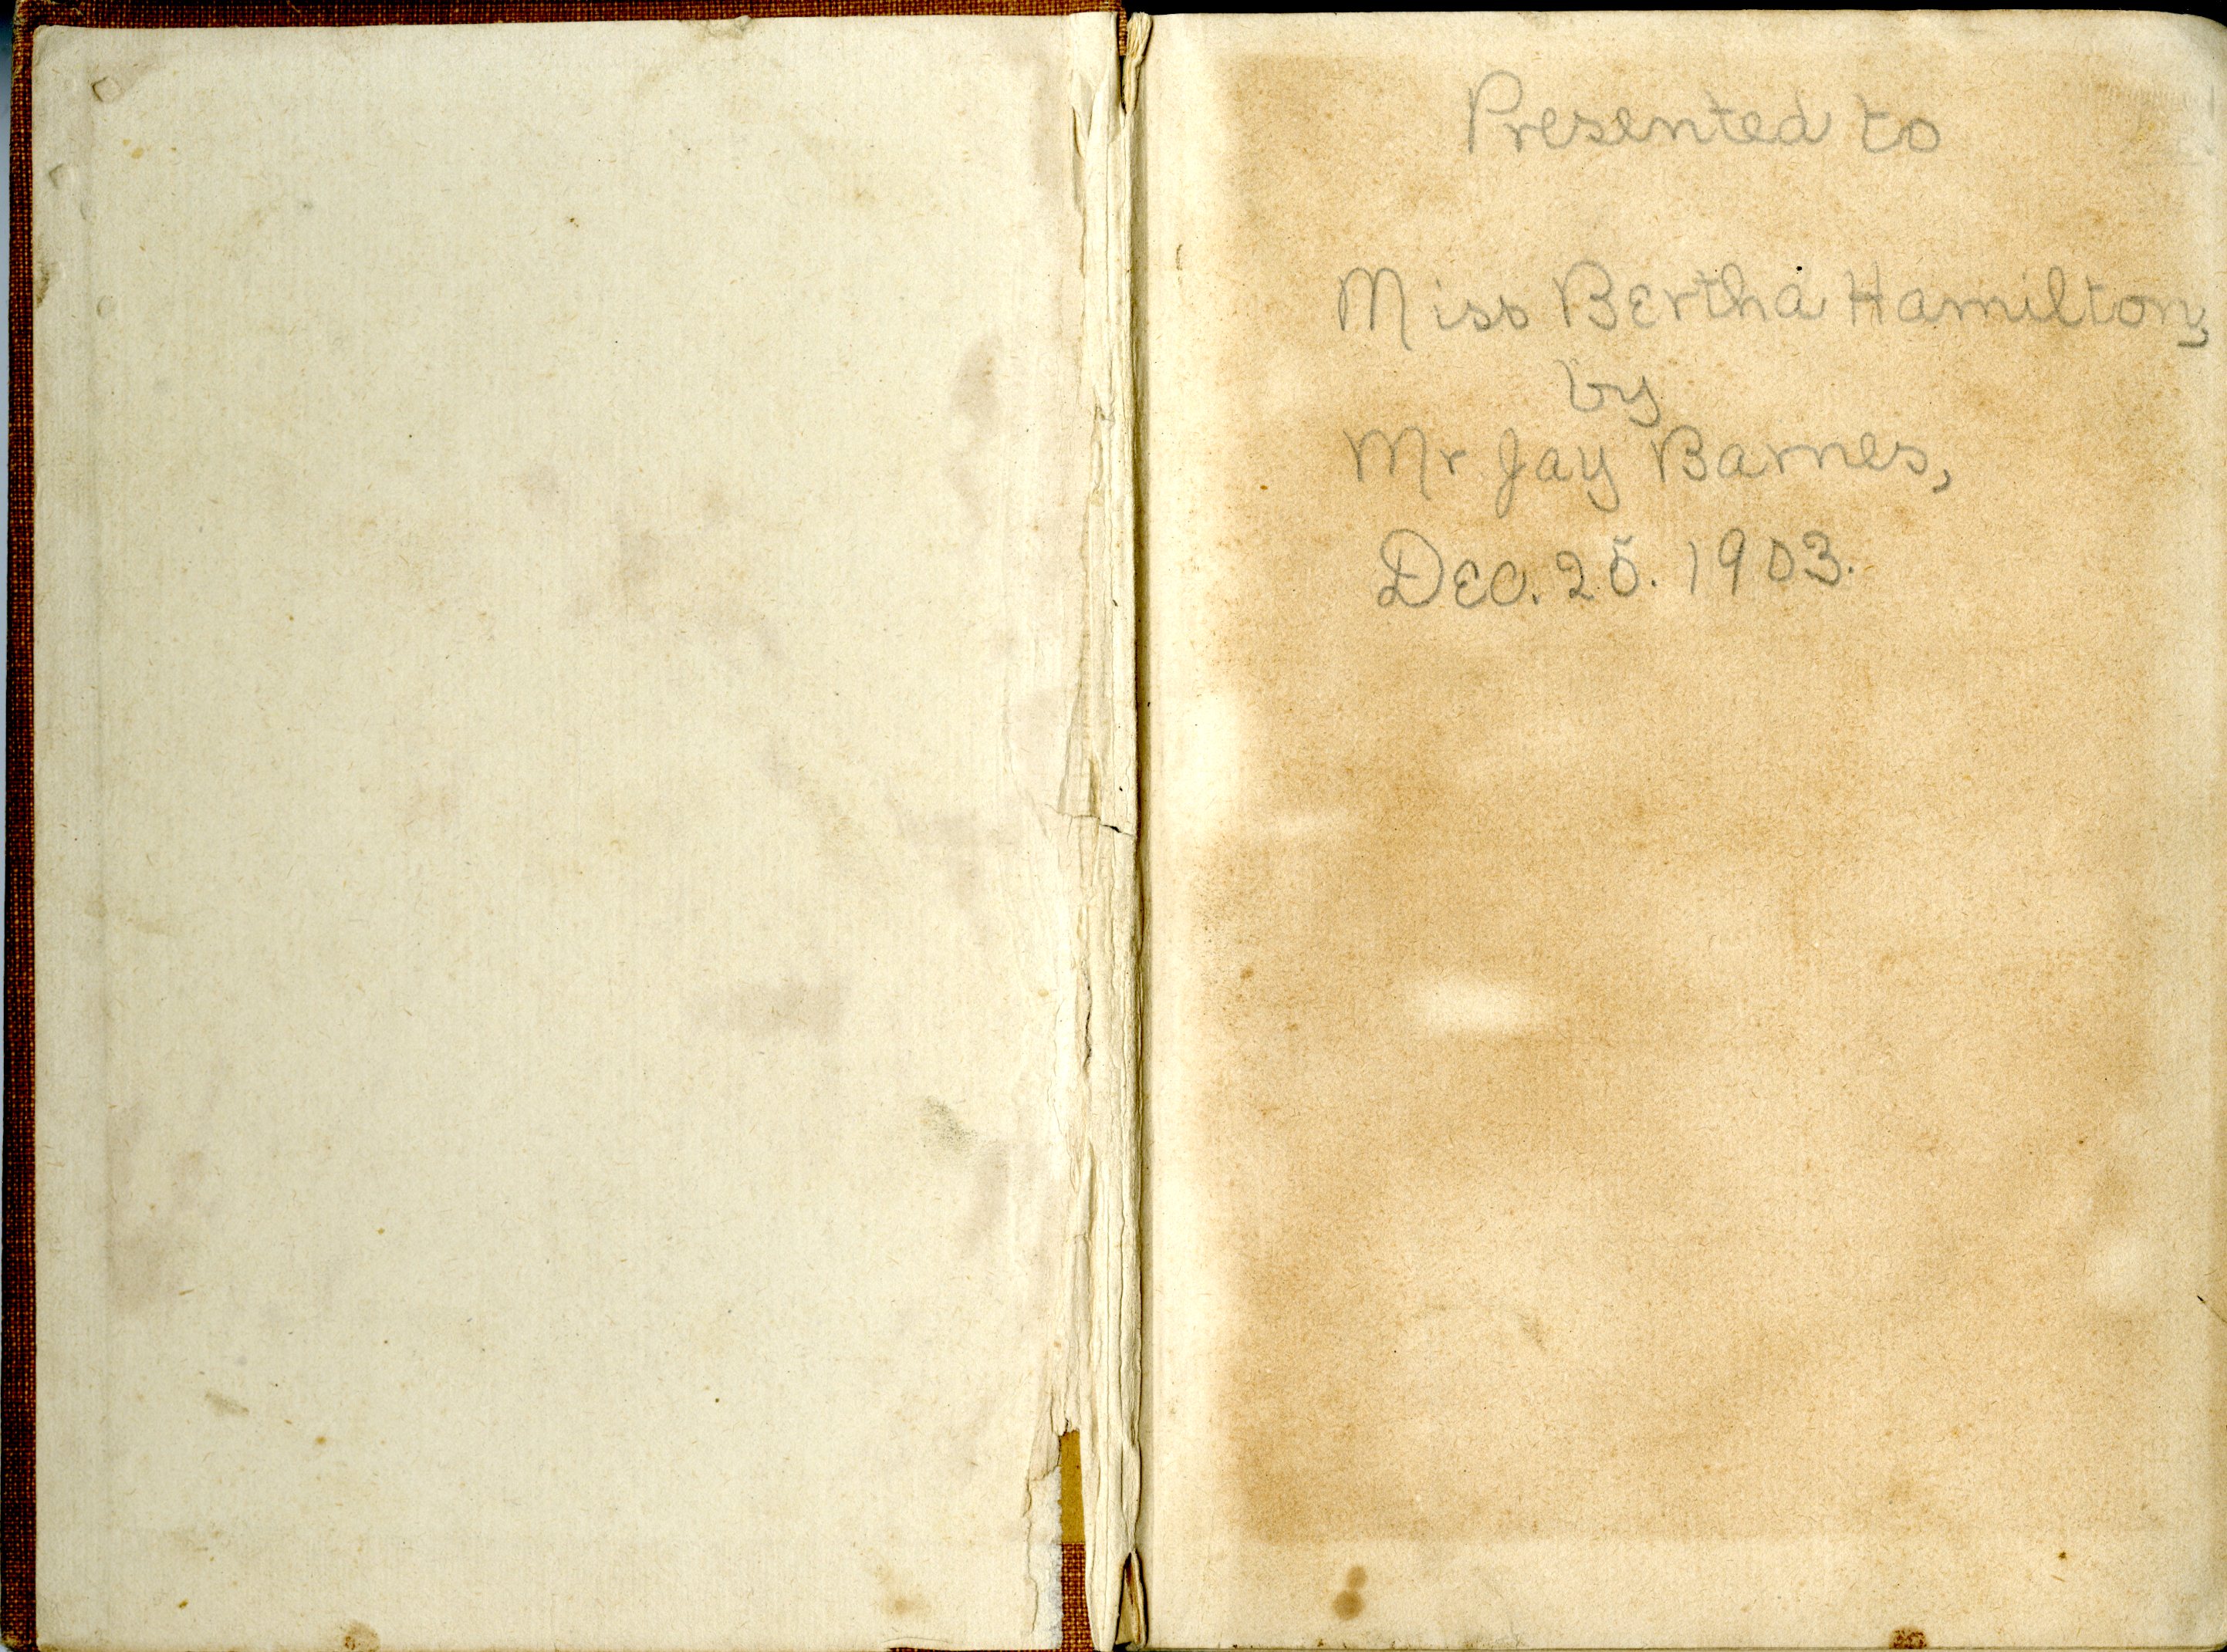 Presented to
Miss Bertha Hamilton,
by
Mr Jay Barnes,
Dec. 25. 1903.